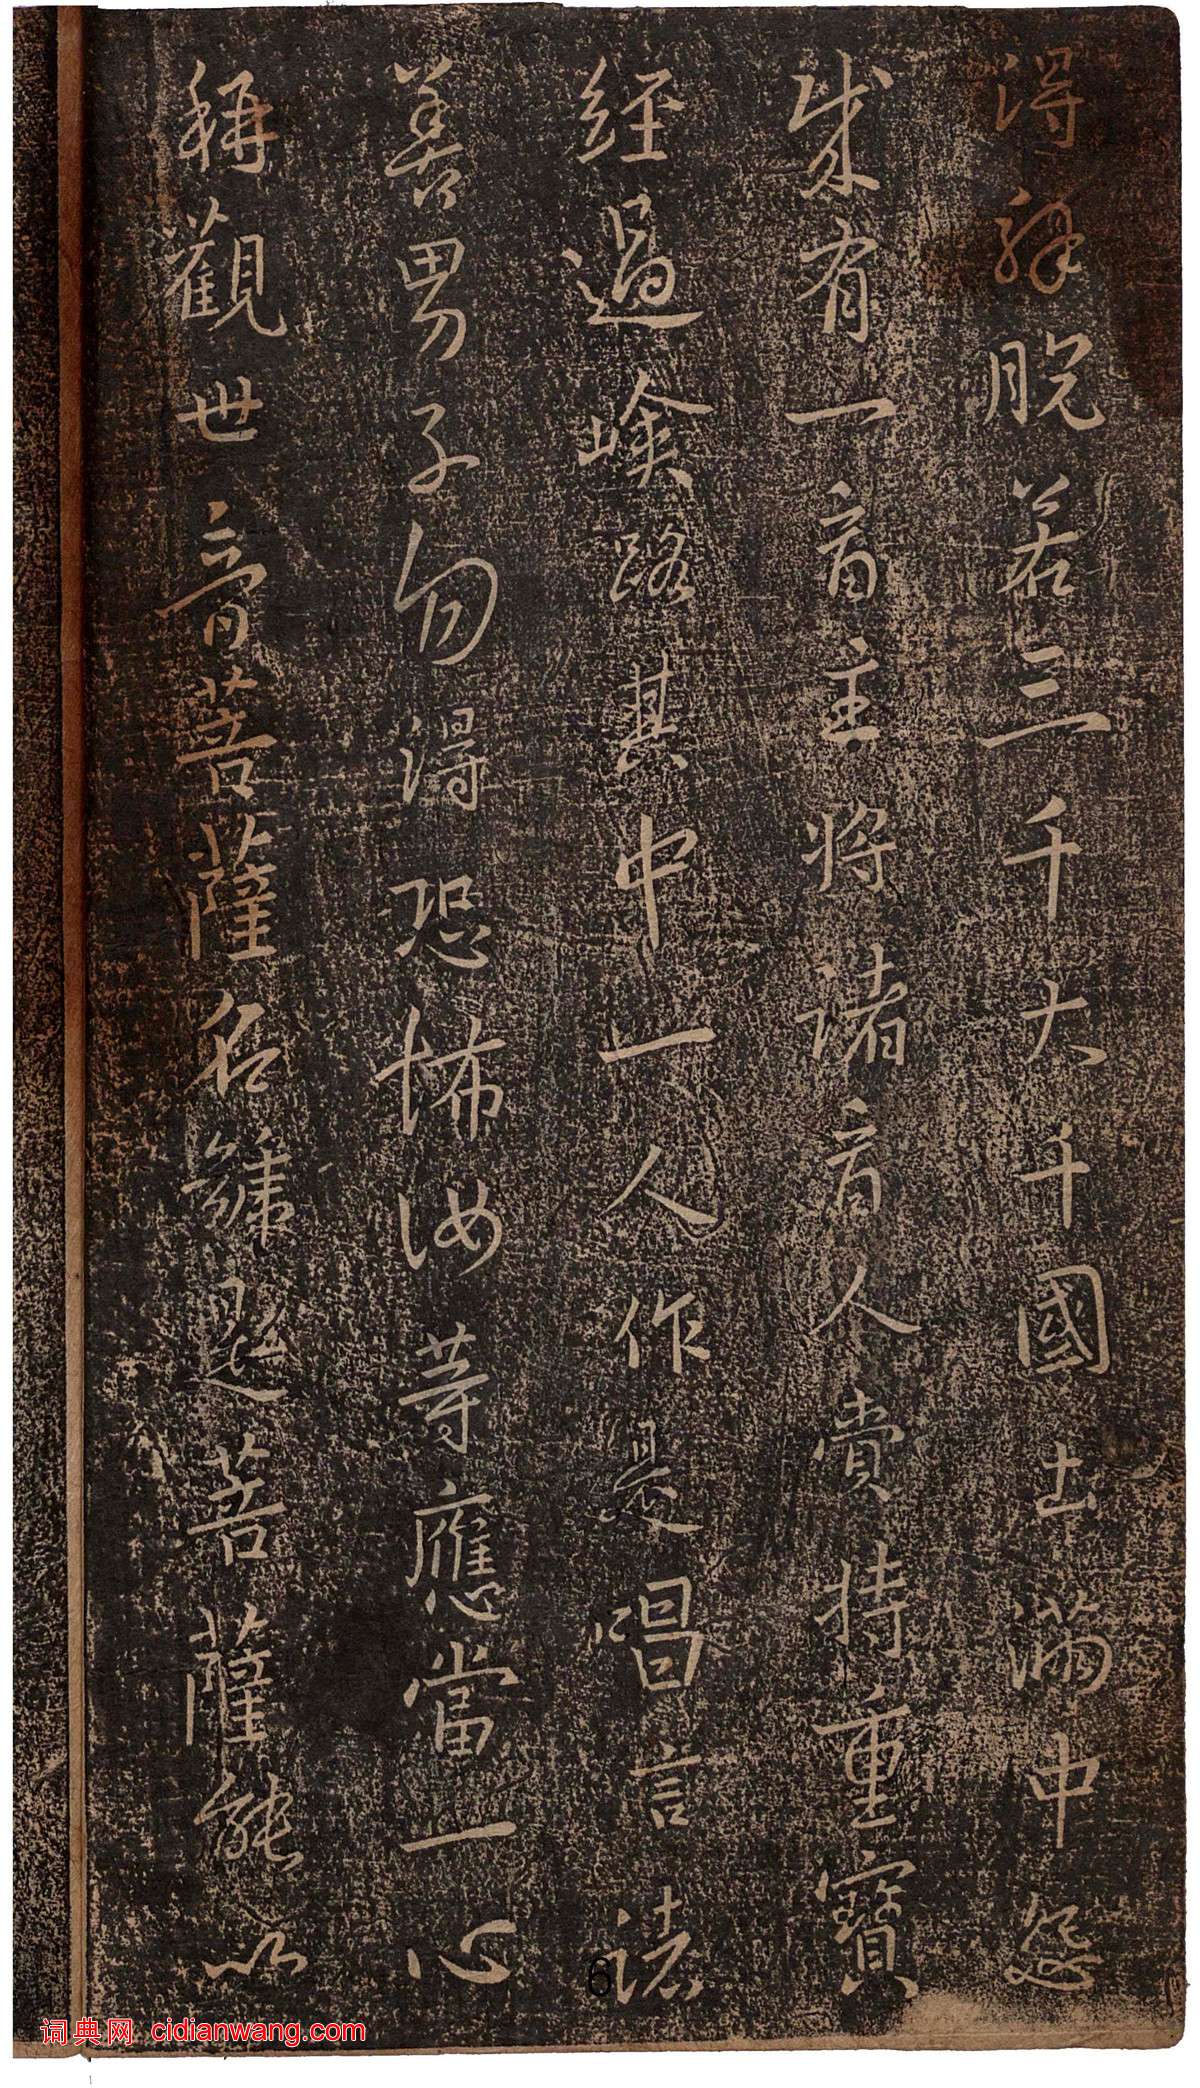 得解脫若三千大千國土滿中怨
賊有一商主將諸商人賷持重寶
經過嶮路其中一人作是唱言諸
善男子勿得恐怖汝等應當一心
稱觀世音菩薩名號是菩薩能以
6
词典网 cidianwang.com